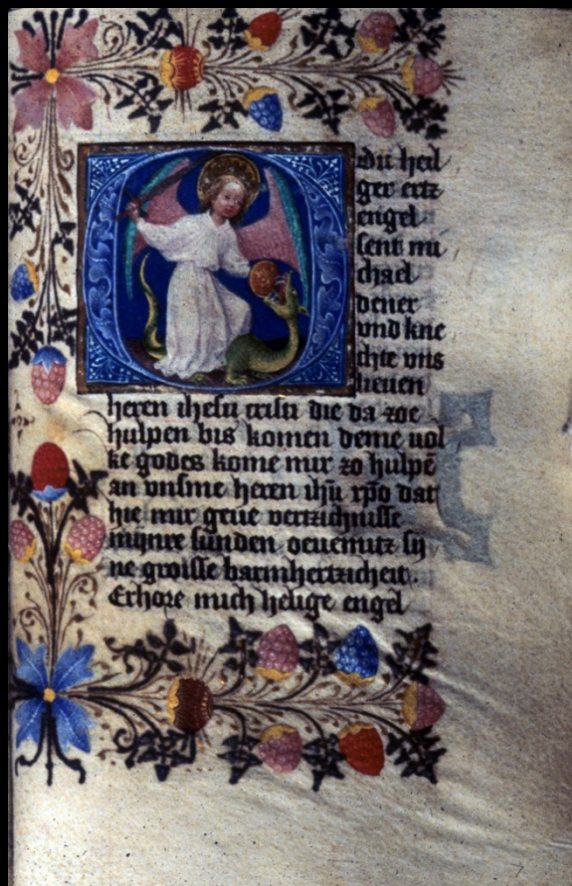 O du heil
ger ertz
engel
sent mi
chael
dener
vnd kne
chte vns
lieuen
heren ihesu cristi die da zoe
hulpen bis komen deme uol
ke godes kome mir zo hulpē
an vnsme heren ihū xp̄o dat
hie mir geue vertzichnisse
mijnre sunden ouermitz sij
ne groisse barmhertzicheit.
Erhore mich helige engel